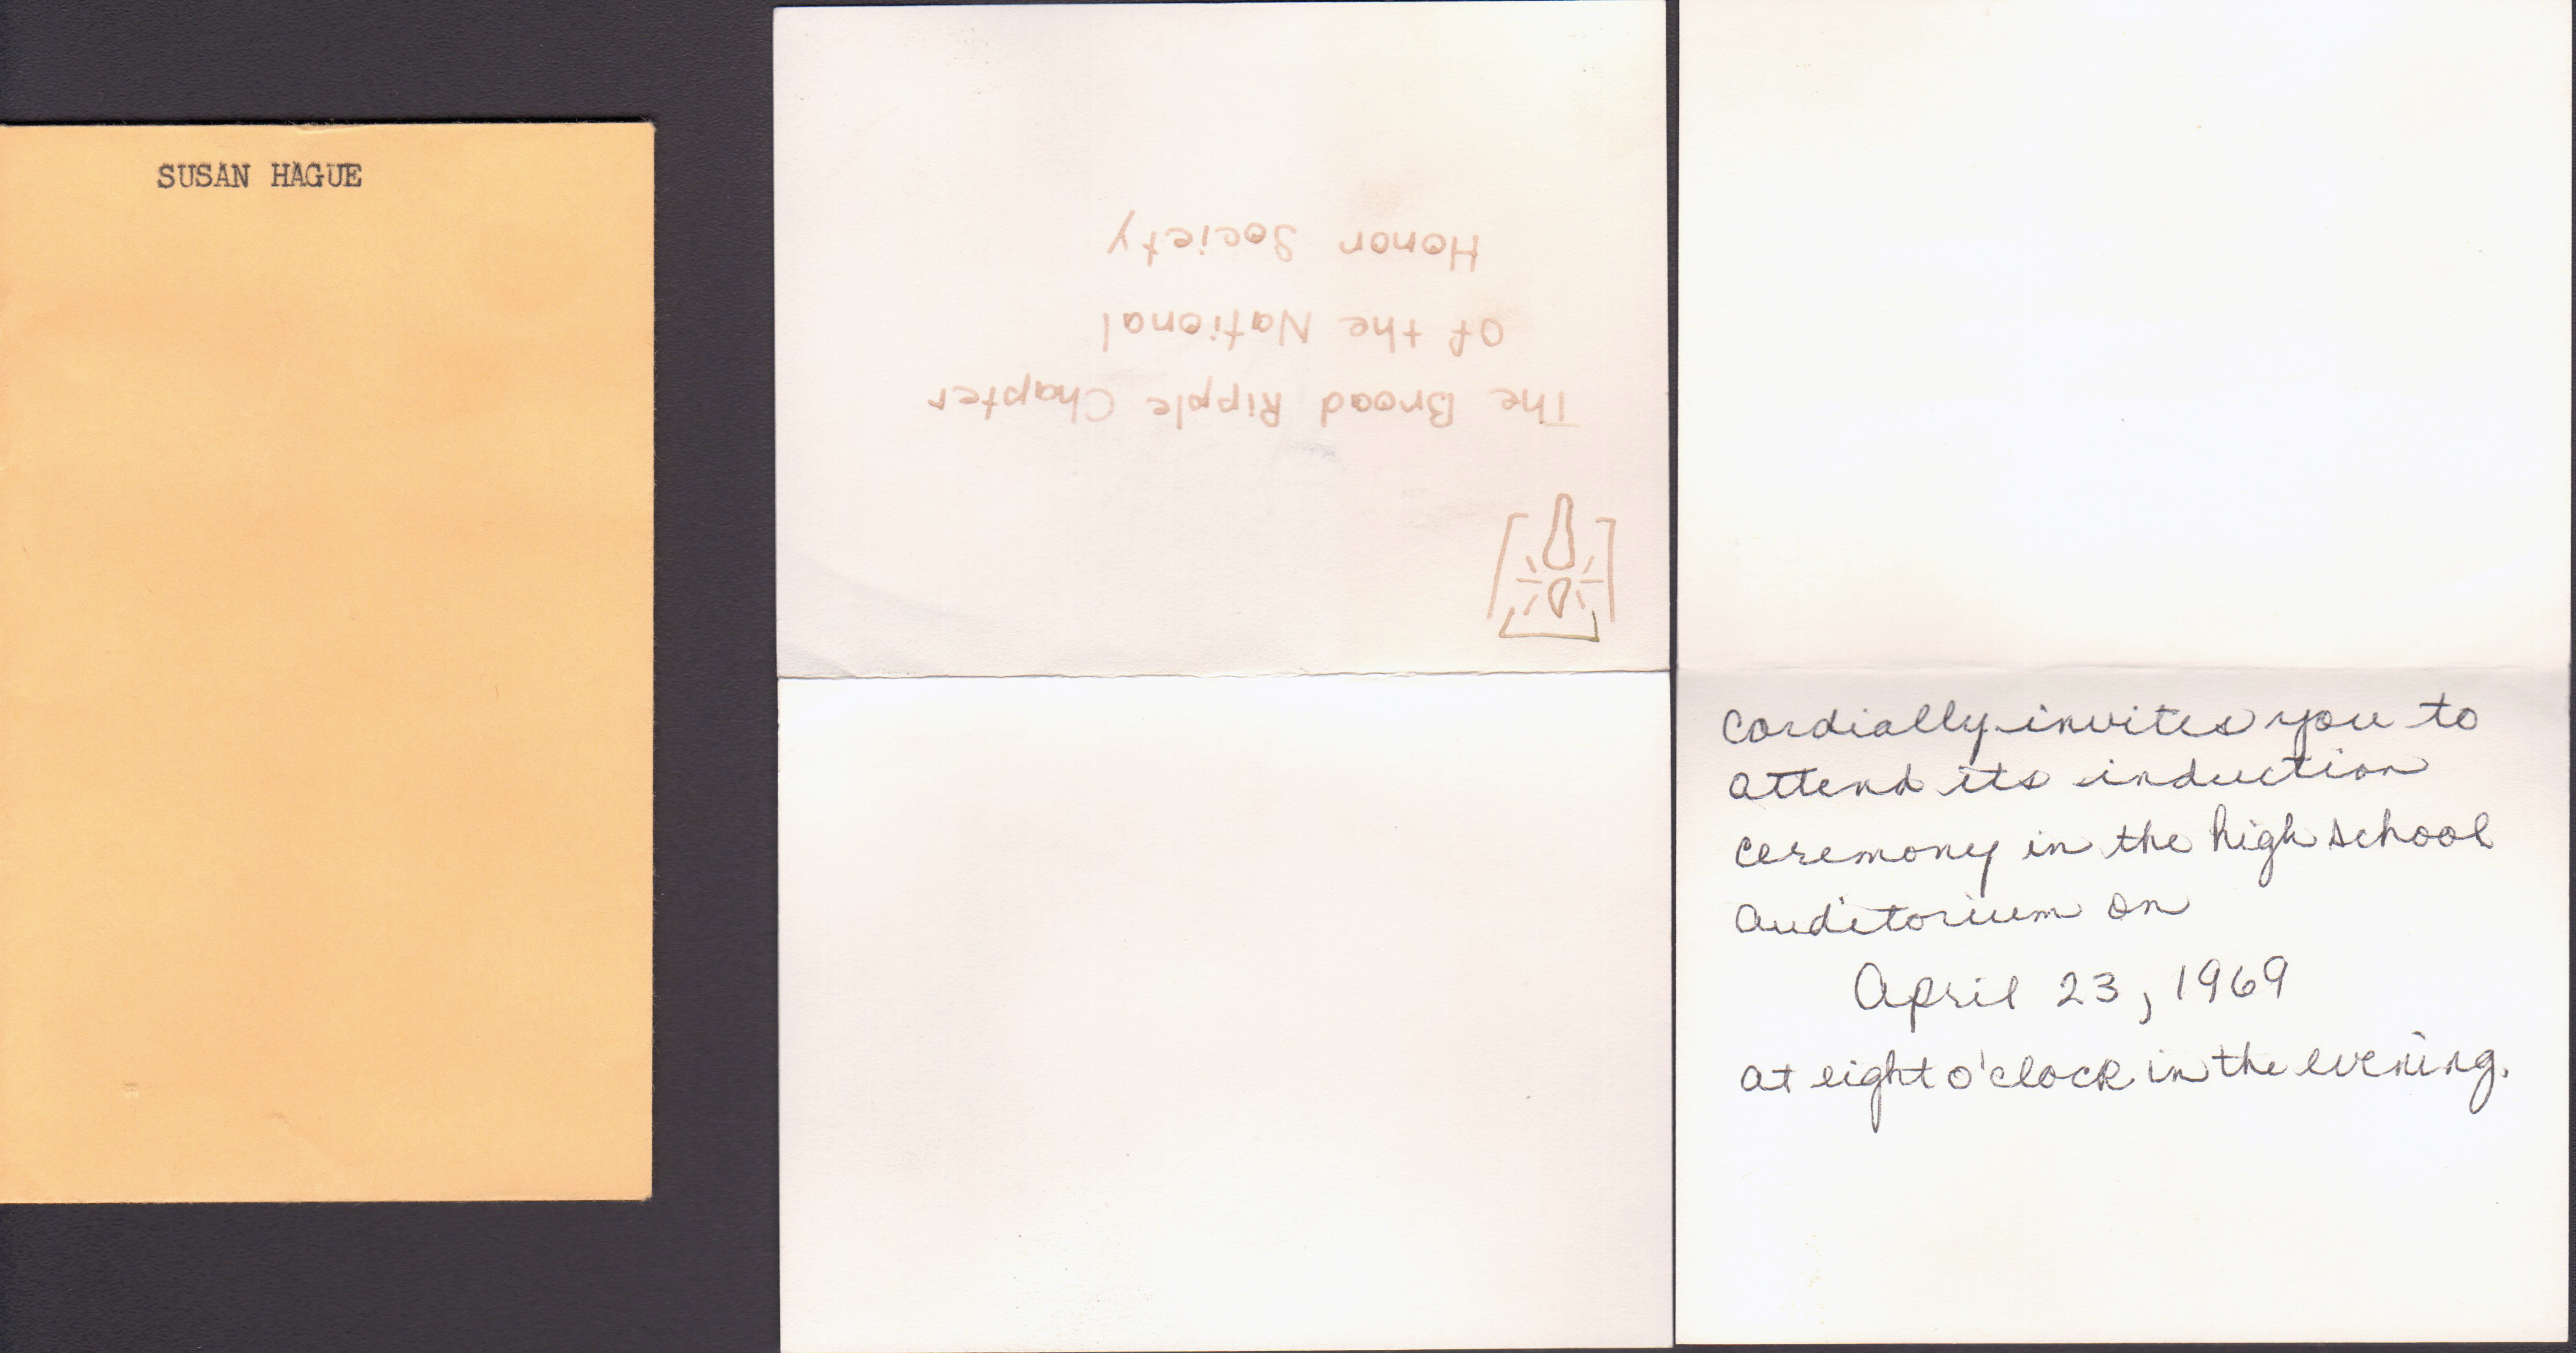 SUSAN HAGUE
The Broad Ripple Chapter
Of the National
Honor Society
Cordially invites you to
attend its induction
ceremony in the high school
auditorium on
April 23, 1969
at eight o'clock in the evening.